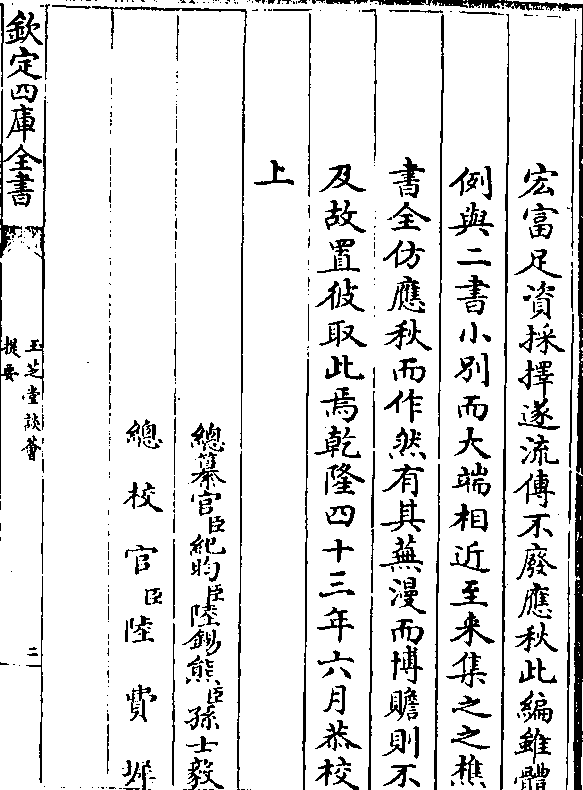 宏富足資採擇遂流傳不廢應秋此編雖體
例與二書小别而大端相近至来集之之樵
書全仿應秋而作然有其蕪漫而博贍則不
及故置彼取此焉乾隆四十三年六月恭校
上
總纂官臣紀昀臣陸錫熊臣孫士毅
總校官臣陸費墀
欽定四庫全書
玉芝堂談薈
提要
二